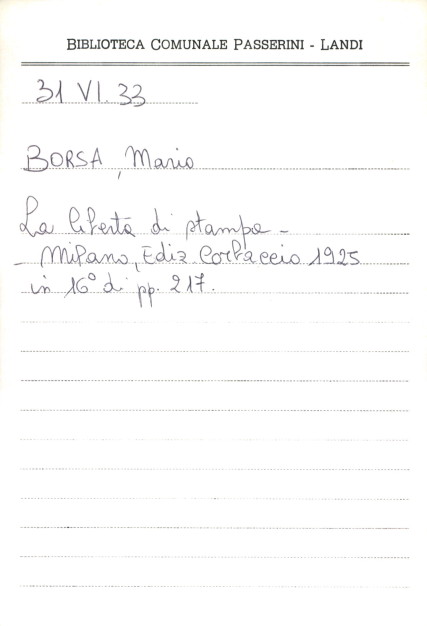 BIBLIOTECA COMUNALE PASSERINI - LANDI
31 VI. 33
BORSA, Mario
La libertà di stampa -
- Milano, Ediz Corbaccio 1925
in 16° di pp. 217.